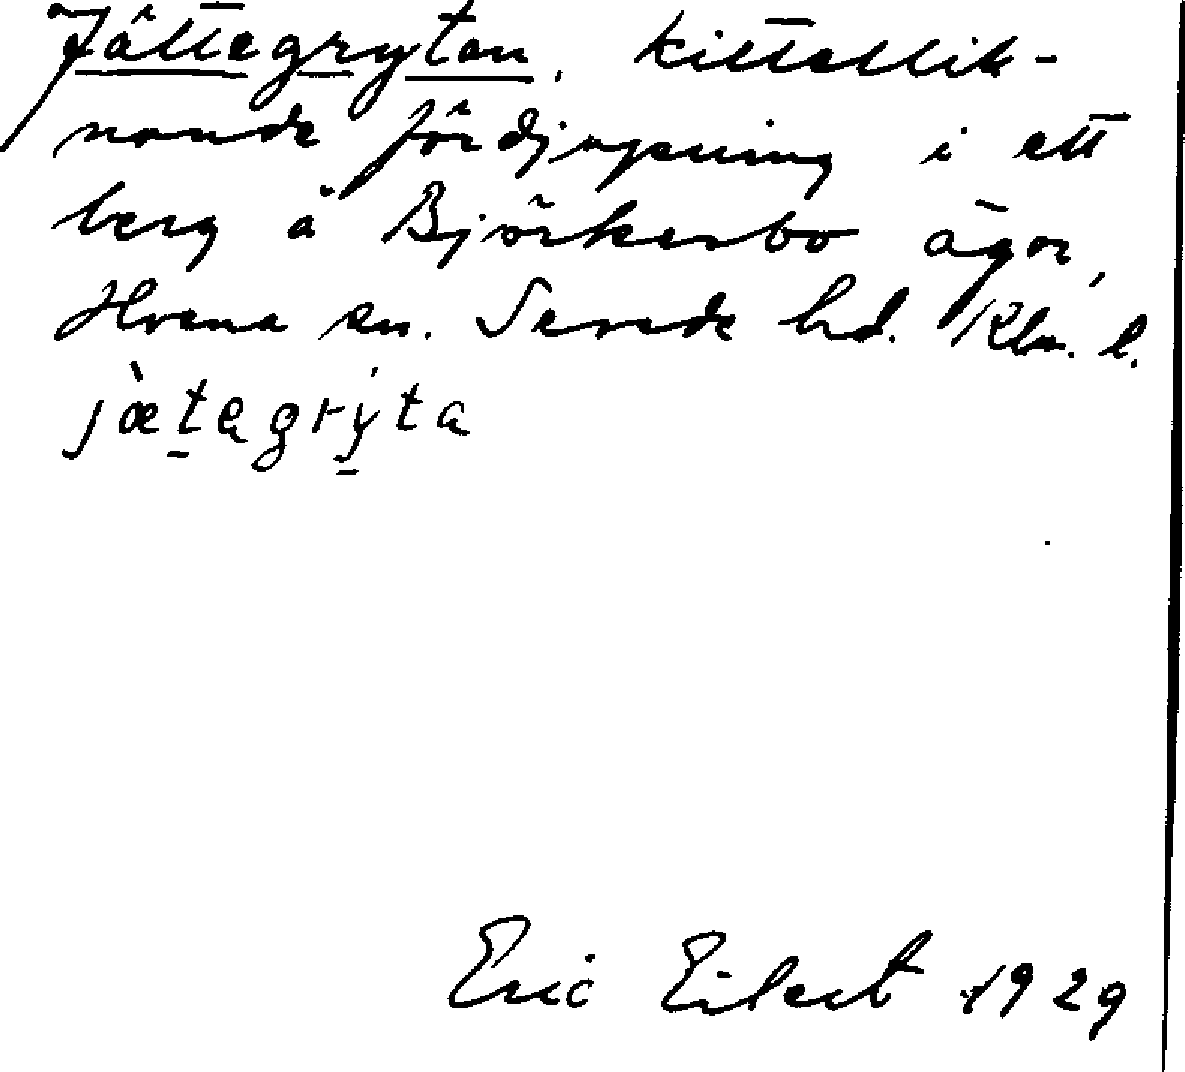 Jättegrytan, kittellik-
nande fördjupning i ett
berg å Björkesbo ägor,
Hvena sn. Sevede hd. Klm. l.
jæ̀tagrýta
Eric Eilert 1929